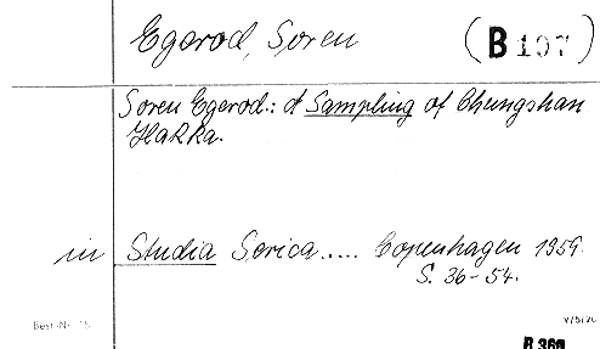 Egerod, Soren (B 107)
Soren Egerod.: A Sampling of Chungshan
Hakka.
in Studia Serica..... Copenhagen 1959.
S. 36-54.
Best.-Nr.
B 360